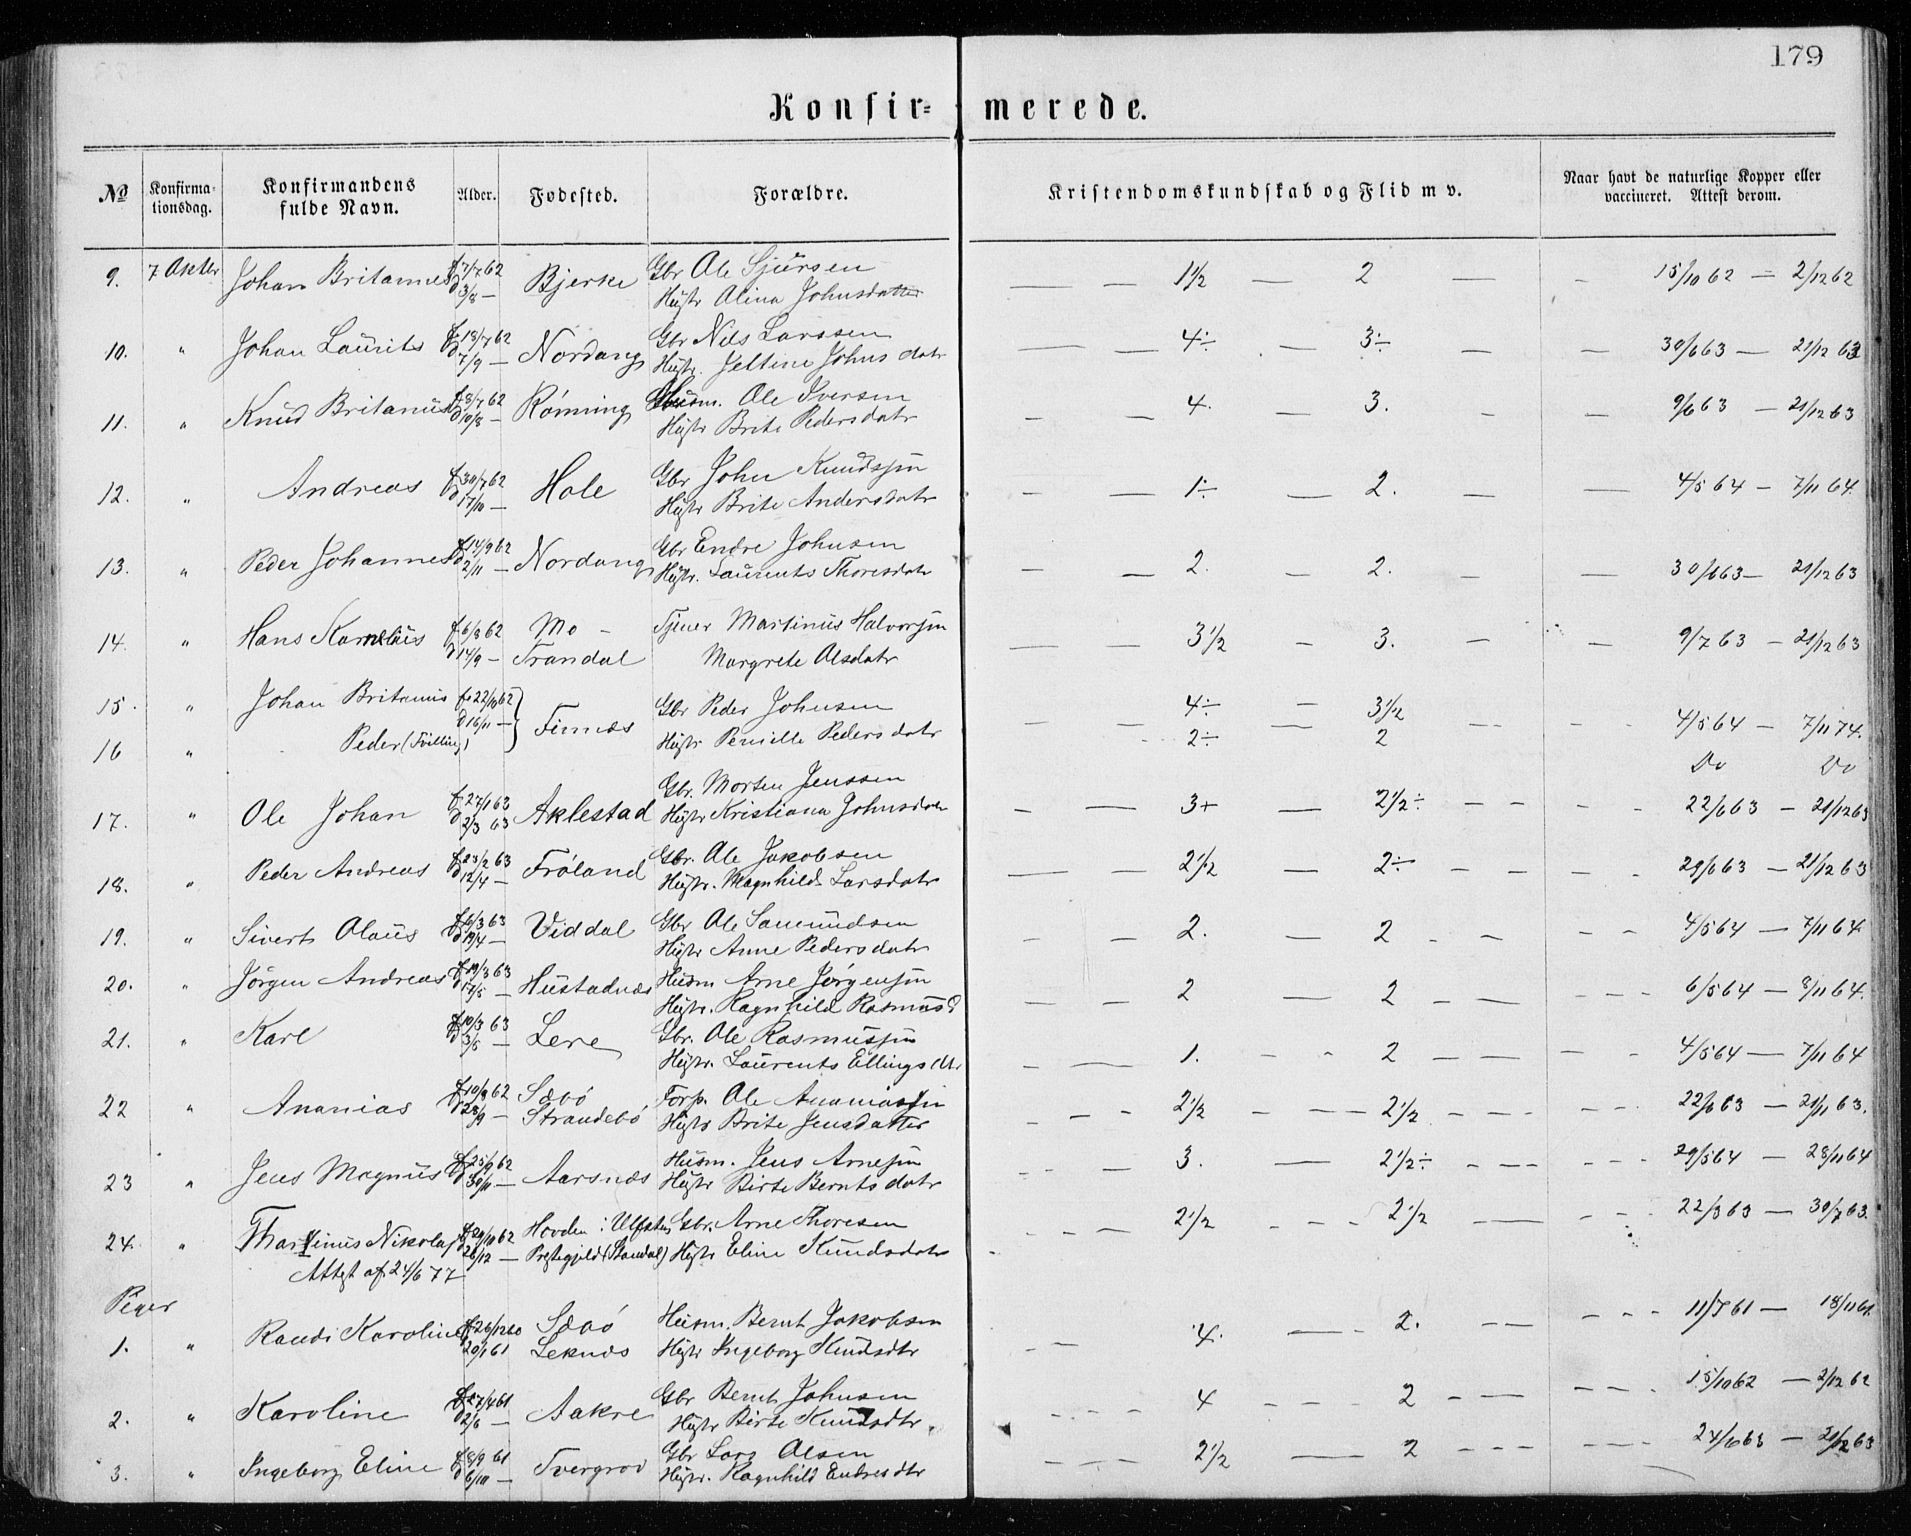 179
Konfir= merede.
№ Konfirma-tionsdag. Konfirmandens fulde Navn. Alder. Fødested. Forældre. Kristendomskundskab og Flid m v. Naar havt de naturlige Kopper eller vaccineret. Attest derom.
9. 7 Oktbr Johan Britannus f 7/7 62 Bjerke Gbr Ole Sjursen — — 1½ — 2 — - 15/10 62 — 2/12 62
d 3/8 — Hustr Olina Johnsdatter
10. " Johan Laurits f 18/7 62 Nordang Gbr Nils Larssen — — 4÷ — 3÷ — — 30/6 63 — 21/12 63
d 7/9 — Hustr. Jettine Johnsdatr
11. " Knud Britanus f 8/7 62 Rönning Husm. Ole Iversen — — 4. — 3. - — 9/6 63 — 21/12 63
d 10/8 — Hustr Brite Pedersdatr
12. " Andreas f 30/7 62 Hole Gbr John Knudssøn — — 1÷ — 2. — — 4/5 64 — 7/11 64.
d 17/10 — Hustr Brite Andersdatr
13. " Peder Johannes f 14/9 62 Nordang Gbr Endre Johnsen — — 2. — 2. — — 30/6 63 — 21/12 63
d 2/11 — Hustr. Laurents Thoresdatr
14. " Hans Kornelius f 6/8 62 Mo - Tjener Martinus Halvorsøn — — 3½ — 3. — — 9/7 63 — 21/12 63
d 14/9 — Trandal Margrete Olsdatr
15. " Johan Britanus f 22/10 62 Finnæs Gbr Peder Johnsen — — 4÷ — 3½ — — 4/5 64 — 7/11 74.
d 16/11 —
16 " Peder (Tvilling) Hustr Pernille Pedersdatr 2÷ 2 Do Do
17. " Ole Johan f 27/1 63 Aklestad Gbr. Morten Jenssen — — 3+ — 2½÷ - - - - 22/6 63 — 21/12 63
d 2/3 63 Hustr Kristiana Johnsdatr
18. " Peder Andreas f 23/2 63 Fröland Gbr. Ole Jakobsen — — 2½ — 2÷ - - - - 29/6 63 — 21/12 63
d 12/4 — Hustr. Magnhild Larsdatr
19. " Sivert Olaus f 6/3 63 Viddal Gbr Ole Samundsen — — 2. — 2 - - - - 4/5 64 — 7/11 64.
d 19/4 — Hustr Anne Pedersdatr
20. " Jörgen Andreas f 19/3 63 Hustadnæs Husm Arne Jörgensøn — — 2 — 2 - — - - - 6/5 64 — 8/11 64.
d 17/5 — Hustr. Ragnhild Rasmusd
21. " Karl f 10/3 63 Lere Gbr. Ole Rasmussøn - — 1. - - 2 — — - - 4/5 64 — 7/11 64
d 3/5 — Hustr. Laurents Ellingsdtr.
22 " Ananias f 10/8 62 Sæbö Forp. Ole Ananiassøn - - - 2½ - - — 2½ - — - - - 22/6 63 — 21/11 63.
d 28/9 — Strandebö Hustr Brite Jensdatter
23 " Jens Magnus f 25/9 62 Aarsnæs Husm. Jens Arnesøn - - — 3. — 2½÷ - — - - - 29/5 64 — 28/11 64
d 30/11 — Hustr Birte Berntsdatr
24. " Martinus Nikolaj f 29/10 62 Hovden i Ulfsten Gbr. Arne Thoresen - - — 2½ - - - 2½ — - - - 22/3 63 — 30/7 63.
d 26/12 — Prestegjeld (Standal) Hustr Eline Knudsdatr
Attest af 24/6 77
Piger
1. " Randi Karoline f 26/12 60 Sæbö Husm. Bernt Jakobsen - — 4. — - 2. — - - - 11/7 61 — 18/11 61.
d 20/1 61 Leknæs Hustr Ingeborg Knudsdtr
2. " Karoline f 27/4 61 Aakre Gbr Bernt Johnsen - - - 4 - - - 2 - - — - - - 15/10 62 — 2/12 62
d 2/6 — Hustr Birte Knudsdtr.
3. " Ingeborg Eline f 8/9 61 Tvergrov Gbr Lars Olsen - - - 2½ — 2 - - - - - - 24/6 63 — 21/12 63
d 6/10 — Hustr. Ragnhild Endresdtr